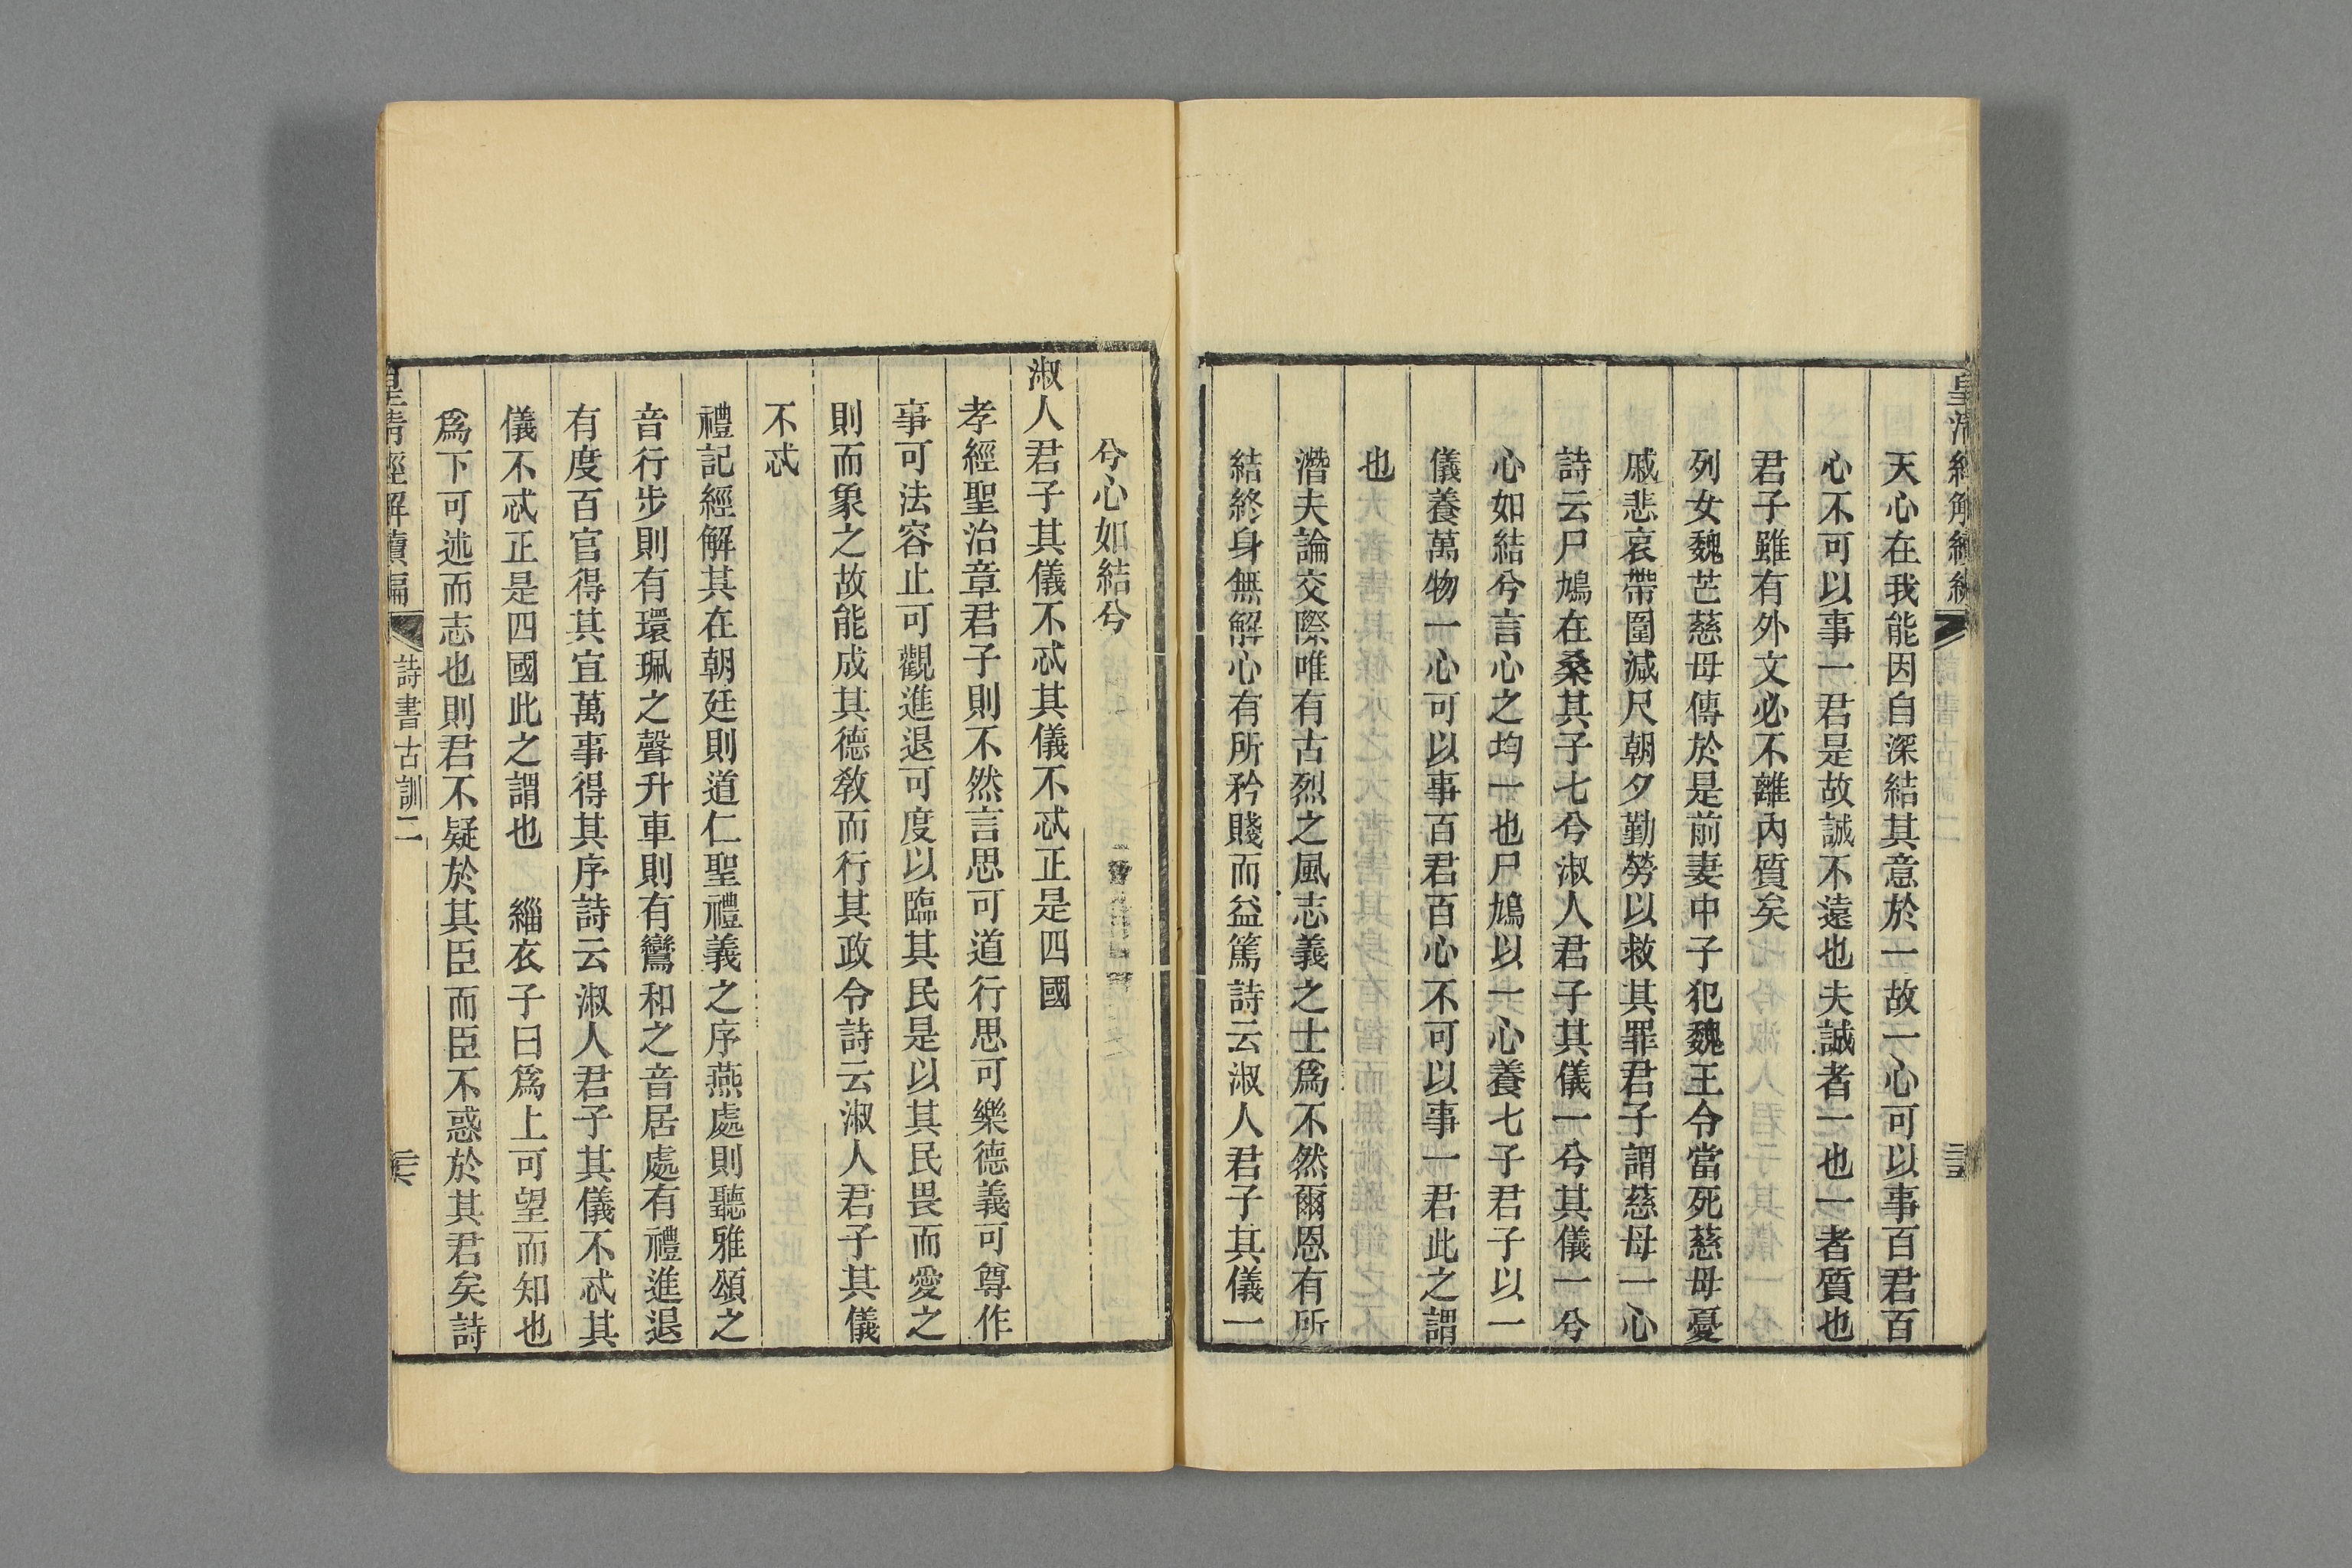 天心在我能因自深結其意於一故一心可以事百君百
心不可以事一君是故誠不遠也夫誠者一也一者質也
君子雖有外文必不離內質矣
列女魏芒慈母傳於是前妻中子犯魏王令當死慈母憂
戚悲哀帶圍減尺朝夕勤勞以救其罪君子謂慈母一心
詩云尸鳩在桑其子七兮淑人君子其儀一兮其儀一兮
心如結兮言心之均一也尸鳩以一心養七子君子以一
儀養萬物一心可以事百君百心不可以事一君此之謂
也
潛夫論交際唯有古烈之風志義之士為不然爾恩有所
結終身無解心有所矜賤而益篤詩云淑人君子其儀一
兮心如結兮
淑人君子其儀不忒其儀不忒正是四國
孝經聖治章君子則不然言思可道行思可樂德義可尊作
事可法容止可觀進退可度以臨其民是以其民畏而愛之
則而象之故能成其德教而行其政令詩云淑人君子其儀
不忒
禮記經解其在朝廷則道仁聖禮義之序燕處則聽雅頌之
音行步則有環珮之聲升車則有鸞和之音居處有禮進退
有度百官得其宜萬事得其序詩云淑人君子其儀不忒其
儀不忒正是四國此之謂也 緇衣子曰爲上可望而知也
爲下可述而志也則君不疑於其臣而臣不惑於其君矣詩
皇清經解續編 詩書古訓二